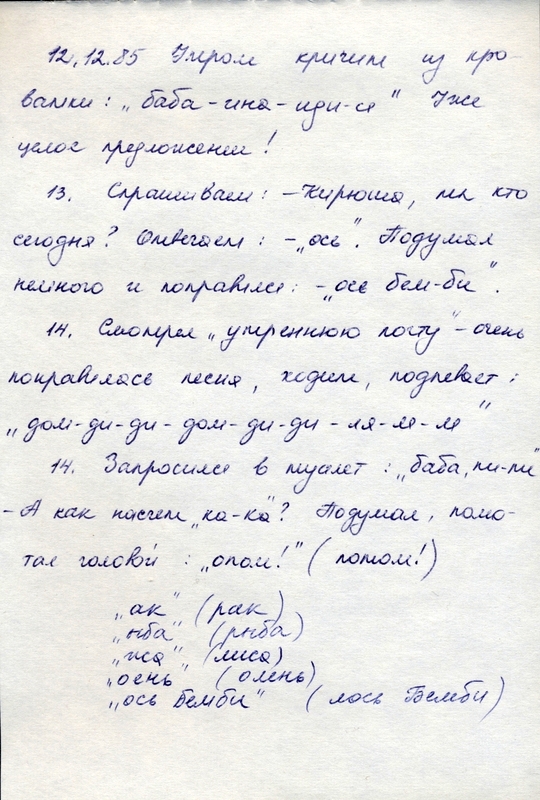 12.12.85 Утром кричит из кро-
ватки: „баба-ина-иди-и" Уже
целое предложение!
13. Спрашиваем: -Кирюша, ты кто
сегодня? Отвечает: -„ось". Подумал
немного и поправился: -„ось бем-би".
14. Смотрел „утреннюю почту" - очень
понравилась песня, ходит, подпевает:
„дом-ди-ди-дом-ди-ди-ля-ля-ля"
14. Запросился в туалет: „баба, пи-пи"
- А как насчет „ка-ка"? Подумал, помо-
тал головой: „опом!" (потом!)
„ак" (рак)
„ыба" (рыба)
„иса" (лиса)
„оень" (олень)
„ось Бемби" (лось Бемби)